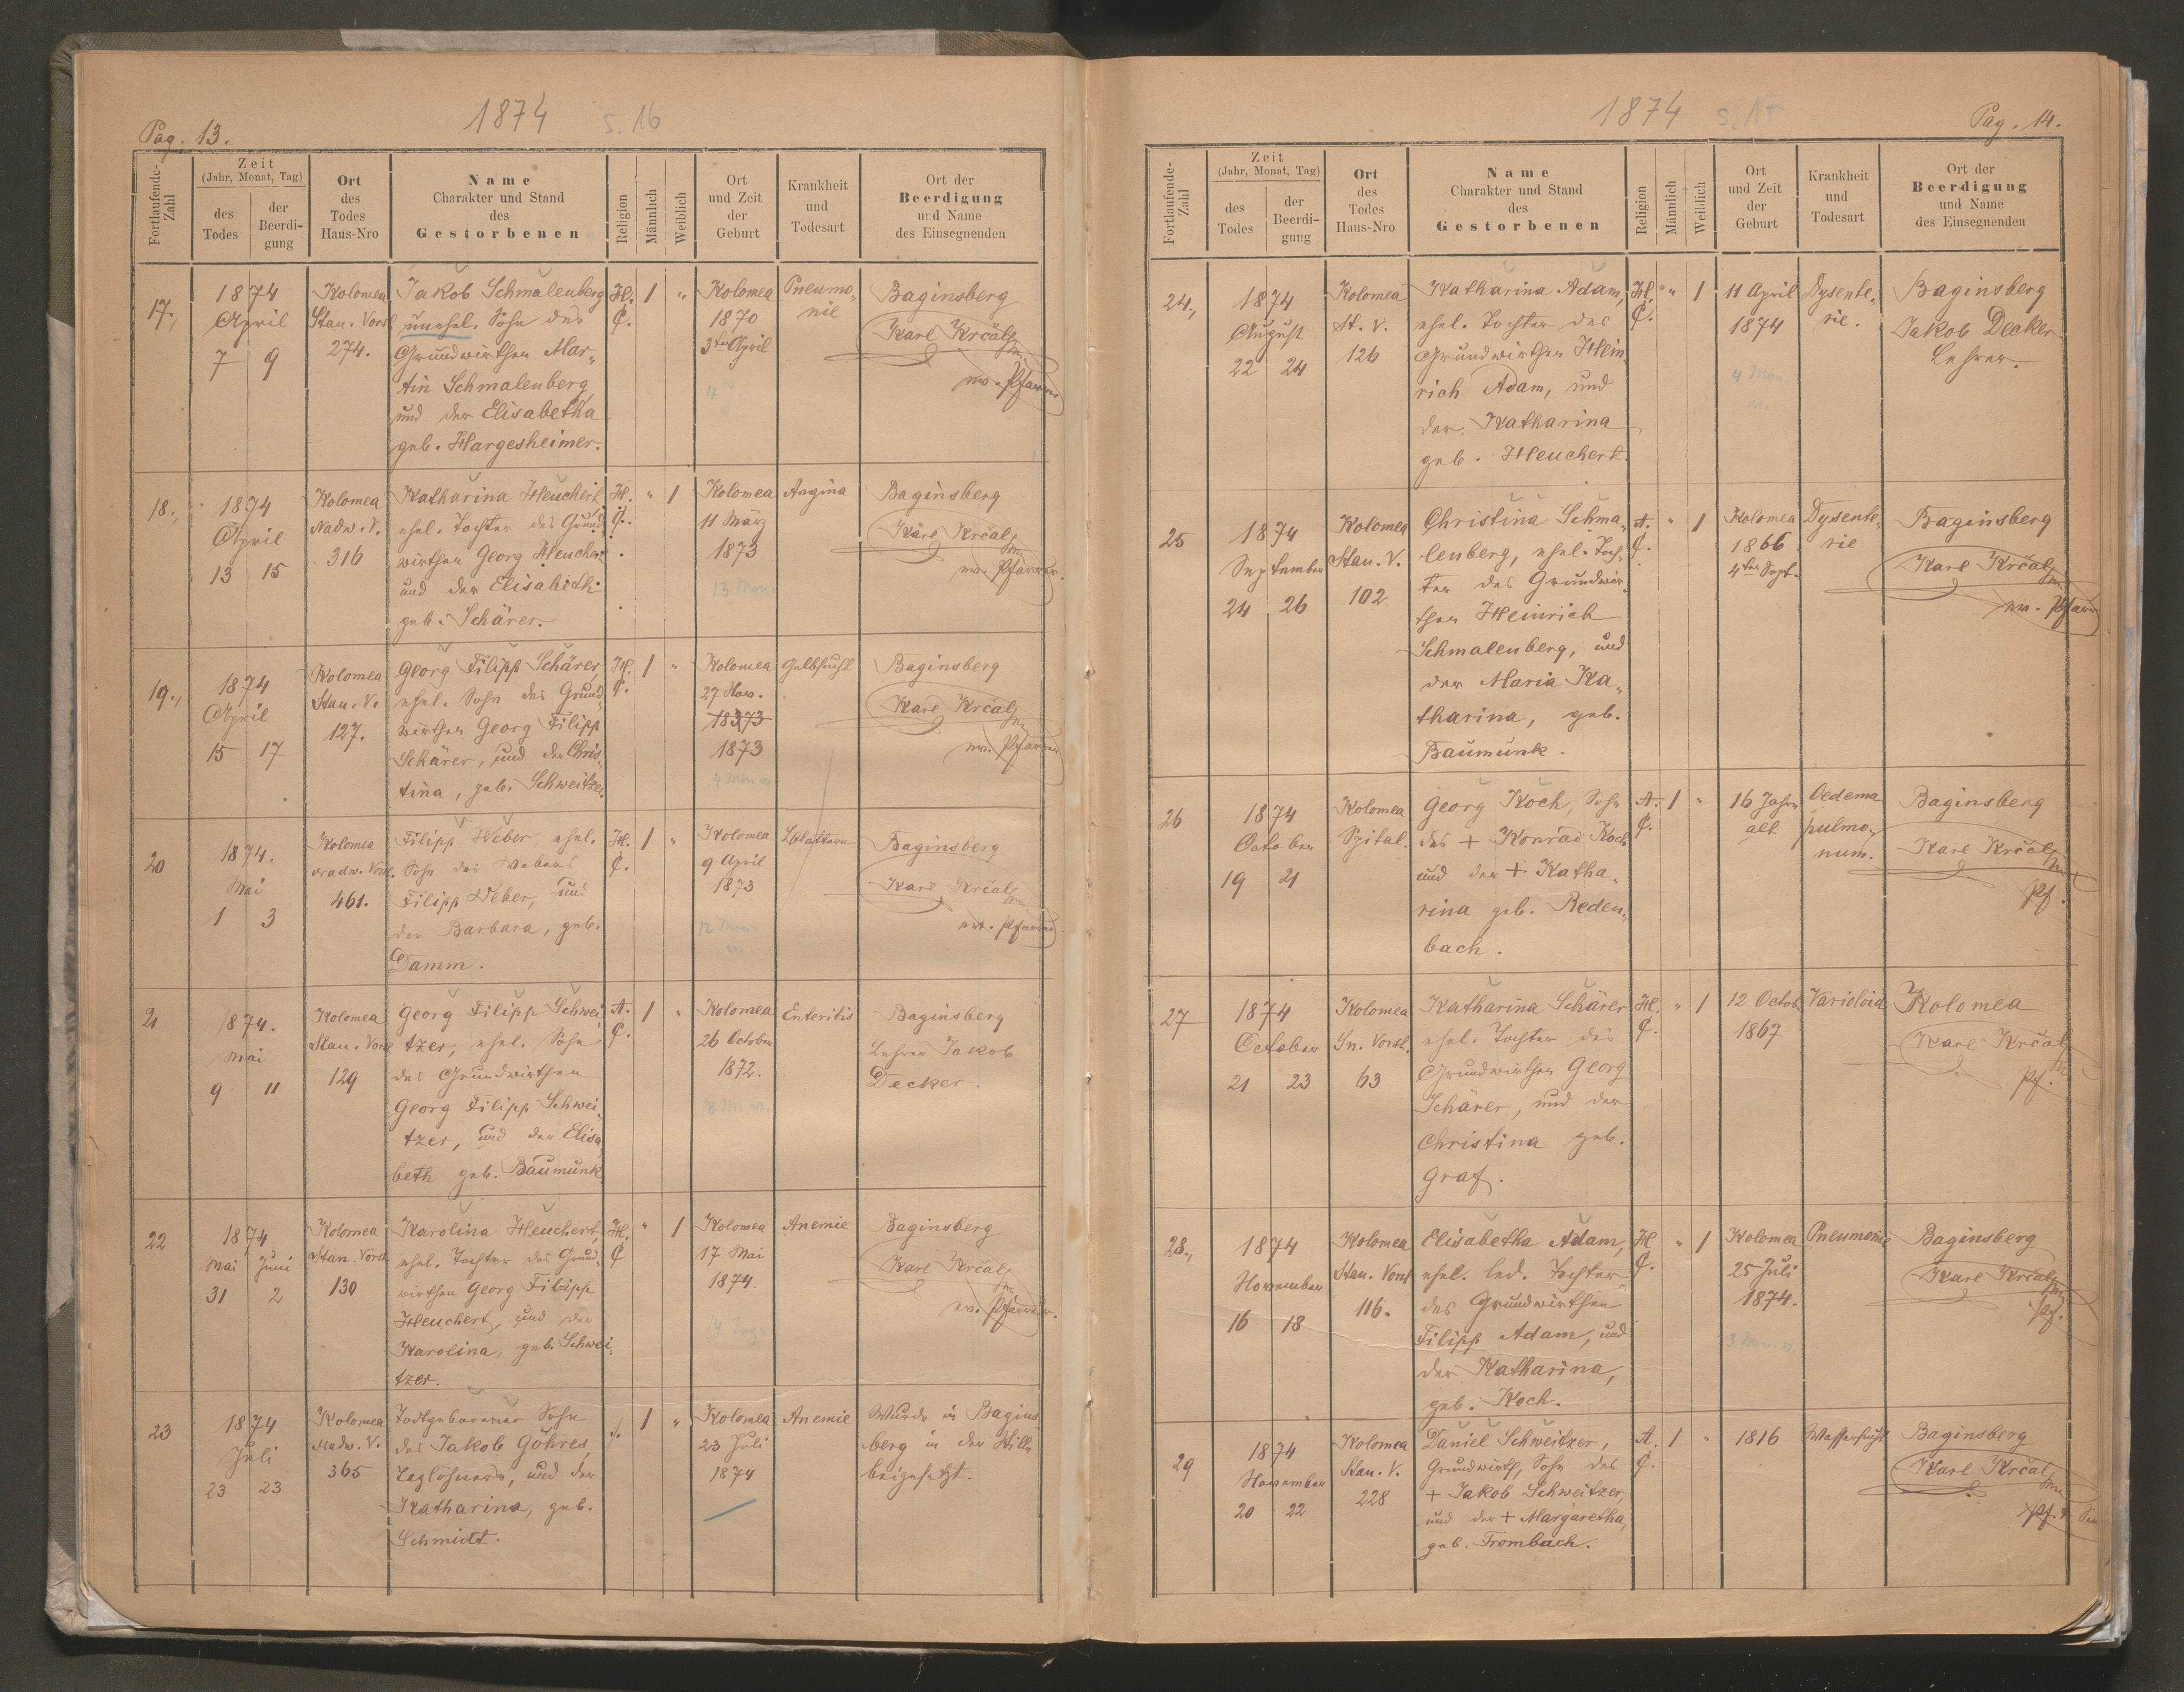 1874 s. 16
Pag. 13.
Fortlaufende-Zahl
Zeit
(Jahr, Monat, Tag)
des Todes
der Beerdi-gung
Ort
des
Todes
Haus-Nro
Name
Charakter und Stand
des
Gestorbenen
Religion
Männlich
Weiblich
Ort
und Zeit
der
Geburt
Krankheit
und
Todesart
Ort der
Beerdigung
und Name
des Einsegnenden
17., 1874 Kolomea Jakob Schmalenberg H. 1 " Kolomea Pneumo„ Baginsberg
April Stan. Vorst unehel. Sohn des C. 1870 nie Karl Krčal
7 9 274. Grundwirthen Mar„ 3ten April
tin Schmalenberg, mp. Pfarrer
und der Elisabetha
geb. Hargesheimer.
18., 1874 Kolomea Katharina Heuchert, H. " 1 Kolomea Angina Baginsberg
April Nadw. V. ehel. Tochter des Grund C. 11 März Karl Krčal
13 15 316 wirthen Georg Heuchert 1873 mp. Pfarrer.
und der Elisabeth 13 Mon.
geb. Schärer.
19., 1874 Kolomea Georg Filipp Schärer, H. 1 " Kolomea Gelbsucht Baginsberg
April Stan. V. ehel. Sohn des Grund C. 27 Nov. Karl Krčal
15 17 127. wirthen Georg Filipp 1873
Schärer, und der Chris„ 1873 mp. Pfarrer
tina, geb. Schweitzer. 4 Mon
20 1874. Kolomea Filipp Weber, ehel. H. 1 " Kolomea Blattern Baginsberg
Mai Nadw. Vorst. Sohn des Webers C. 9 April Karl Krčal
1 3 461. Filipp Weber, und 1873
der Barbara, geb. 12 Mon. mp. Pfarrer
Damm.
21 1874. Kolomea Georg Filipp Schwei„ A. 1 " Kolomea Enteritis Baginsberg
Mai Stan. Vorst tzer, ehel. Sohn C. 26 October Lehrer Jakob
9 11 129 des Grundwirthen 1872. Decker.
Georg Filipp Schwei„
tzer, und der Elisa„
beth geb. Baumunk
22 1874 Kolomea Karolina Heuchert, H. " 1 Kolomea Anemie Baginsberg
Mai Juni Stan. Vorst ehel. Tochter des Grund„ C 17 Mai Karl Krčal
31 2 130 wirthen Georg Filipp 1874. mp. Pfarrer.
Heuchert, und der 14 Tage
Karolina, geb. Schwei„
tzer.
23 1874 Kolomea Todtgeborener Sohn 1 " Kolomea Anemie Wurde in Bagins
Juli Nadw. V. des Jakob Göhres, 23 Juli berg in der Stille
23 23 365 Taglöhners, und der 1874 beigesetzt.
Katharina, geb.
Schmidt.
1874
Pag. 14.
Fortlaufende-Zahl
Zeit
(Jahr, Monat, Tag)
des Todes
der Beerdi-gung
Ort
des
Todes
Haus-Nro
Name
Charakter und Stand
des
Gestorbenen
Religion
Männlich
Weiblich
Ort
und Zeit
der
Geburt
Krankheit
und
Todesart
Ort der
Beerdigung
und Name
des Einsegnenden
24., 1874 Kolomea Katharina Adam, H. " 1 11 April Dysente„ Baginsberg
August St. V. ehel. Tochter des C. 1874 rie. Jakob Decker
22 24 126 Grundwirthen Hein„ Lehrer.
rich Adam, und 4 Mon.
der Katharina
geb. Heuchert.
25 1874 Kolomea Christina Schma„ A. " 1 Kolomea Dysente„ Baginsberg
September Stan. V. lenberg, ehel. Toch„ C. 1866 rie Karl Krčal
24 26 102 ter des Grundwir„ 4ten Sept. mp. Pfarr
then Heinrich
Schmalenberg, und
der Maria Ka„
tharina, geb.
Baumunk.
26 1874 Kolomea Georg Koch, Sohn A. 1 " 16 Jahre Oedema Baginsberg
October Spital. des + Konrad Koch C. alt pulmo„ Karl Krčal
19 21 und der + Katha„ num. Pf.
rina geb. Reden„
bach.
27 1874 Kolomea Katharina Schärer H. " 1 12 Octob. Varioloid Kolomea
October Sn. Vorst. ehel. Tochter des C. 1867 Karl Krčal
21 23 63 Grundwirthen Georg Pf.
Schärer, und der
Christina geb.
Graf.
28., 1874 Kolomea Elisabetha Adam, H " 1 Kolomea Pneumonie Baginsberg
November Stan. Vorst ehel. led. Tochter C. 25 Juli Karl Krčal
16 18 116. des Grundwirthen 1874. Pf.
Filipp Adam, und 3 Mon.
der Katharina,
geb. Koch.
29 1874 Kolomea Daniel Schweitzer, A. 1 " 1816 Wassersucht Baginsberg
November Stan. V. Grundwirth, Sohn des C. Karl Krčal
20 22 228 + Jakob Schweitzer,
und der + Margaretha, Pf.
geb. Frombach.